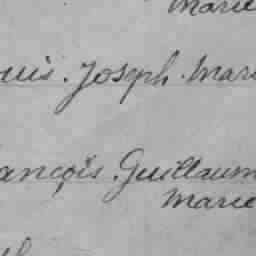 Marie
ouis. Joseph. Mari
ançois. Guillaum
Marie